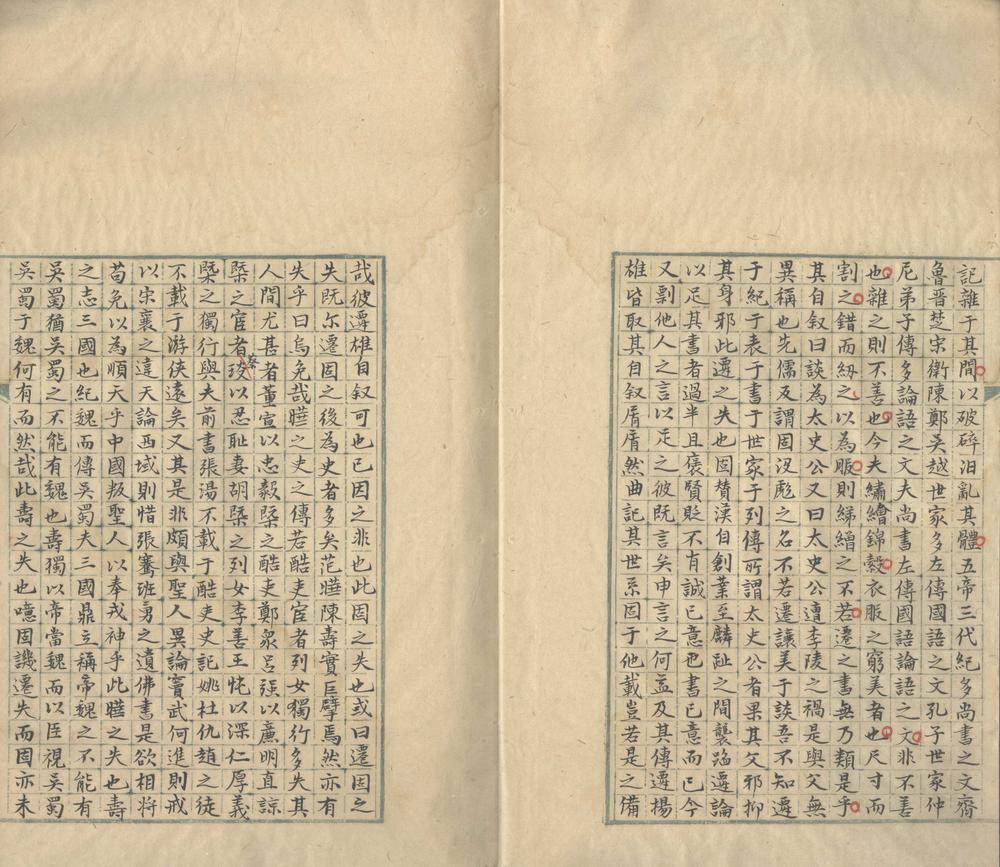 記雜于其間以破碎汨亂其體五帝三代紀多尚書之文齊
魯晉楚宋衛陳鄭吳越世家多左傳國語之文孔子世家仲
尼弟子傳多論語之文夫尚書左傳國語論語之文非不善
也雜之則不善也今夫繡繪錦縠衣服之窮美者也尺寸而
割之錯而紉之以為服則綈繒之不若遷之書無乃類是乎
其自叙曰談為太史公又曰太史公遭李陵之禍是與父無
異稱也先儒反謂固沒彪之名不若遷讓美于談吾不知遷
于紀于表于書于世家于列傳所謂太史公者果其父邪抑
其身邪此遷之失也固贊漢自創業至麟趾之間襲蹈遷論
以足其書者過半且褒賢貶不肖誠己意也書己意而已今
又剽他人之言以足之彼既言矣申言之何益及其傳遷揚
雄皆取其自叙屑屑然曲記其世系固于他載豈若是之備
哉彼遷雄自叙可也已因之非也此固之失也或曰遷固之
失既尔遷固之後為史者多矣范曄陳壽實巨擘焉然亦有
失乎曰烏免哉曄之史之傳若酷吏宦者列女獨行多失其
人間尤甚者董宣以忠毅槩之酷吏鄭衆呂强以廉明直諒
槩之宦者琰以忍恥妻胡槩之列女李善王忳以深仁厚義
槩之獨行與夫前書張湯不載于酷吏史記姚杜仇趙之徒
不載于游俠遠矣又其是非頗與聖人異論竇武何進則戒
以宋襄之違天論西域則惜張騫班勇之遺佛書是欲相將
苟免以為順天乎中國叛聖人以奉戎神乎此曄之失也壽
之志三國也紀魏而傳吳蜀夫三國鼎立稱帝魏之不能有
吳蜀猶吳蜀之不能有魏也壽獨以帝當魏而以臣視吳蜀
吳蜀于魏何有而然哉此壽之失也噫固譏遷失而固亦未